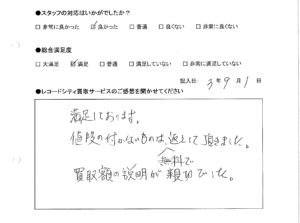 ●スタッフの対応はいかがでしたか?
□ 非常に良かった ☑ 良かった □ 普通 □ 良くない □ 非常に良くない
●総合満足度
□ 大満足 ☑ 満足 □ 普通 □ 満足していない □ 非常に満足していない
記入日: 3年 9月 1日
●レコードシティ買取サービスのご感想を聞かせてください
満足しております。
値段の付かないものは、返して頂きました。
無料で
買取額の説明が親切でした。